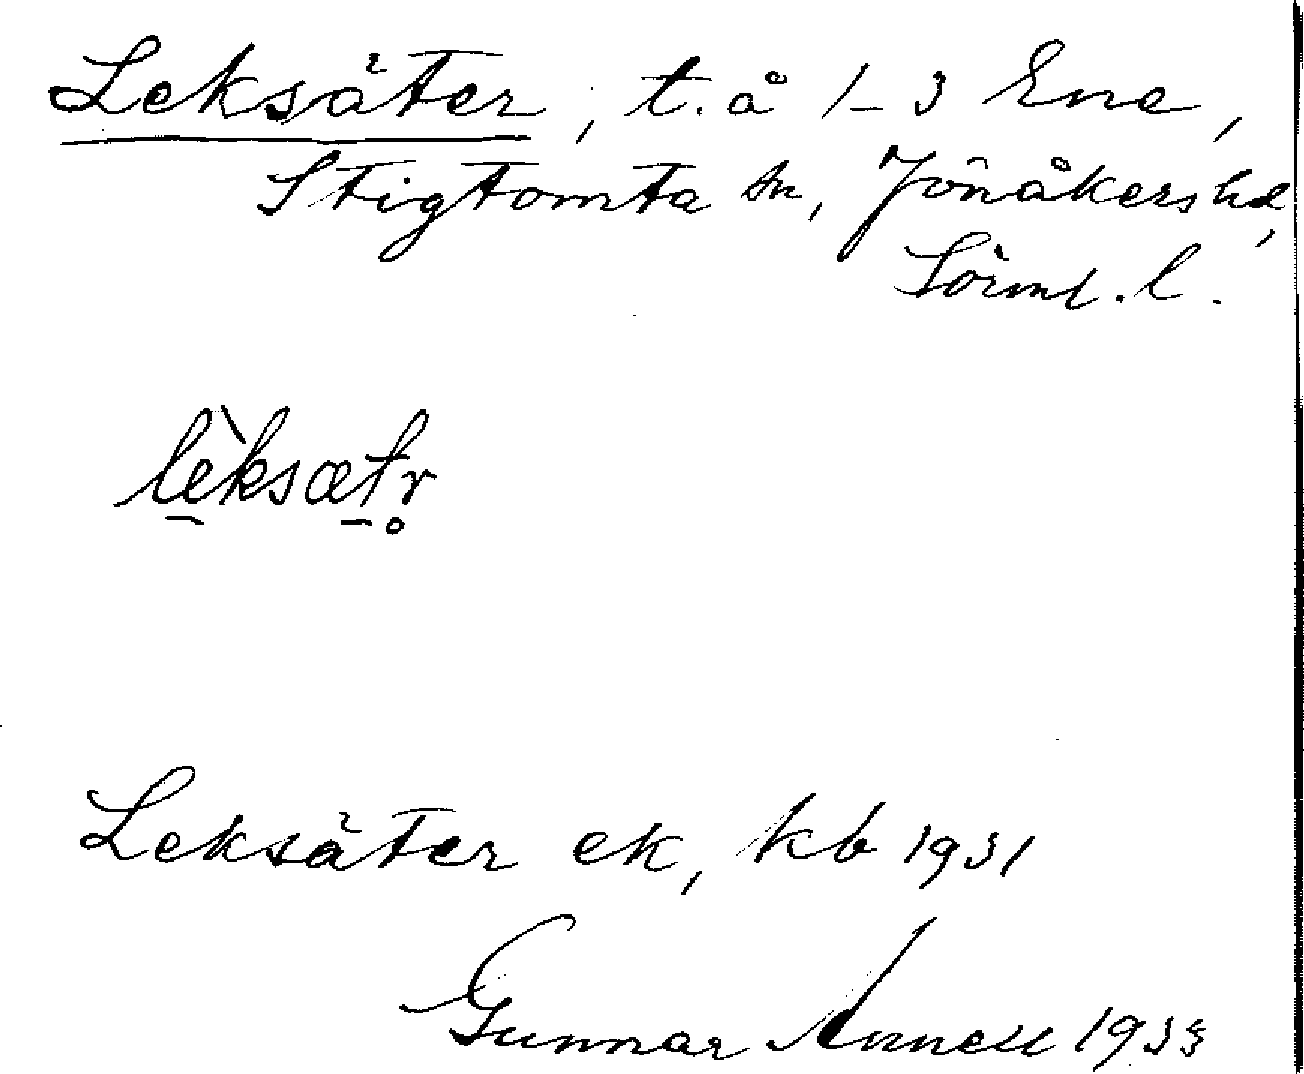 Leksäter, t. å 1-3 Ene,
Stigtomta sn, Jönåkers hd,
Sörml. l.
lèksætr̥
Leksäter ek, kb 1931
Gunnar Annell 1933